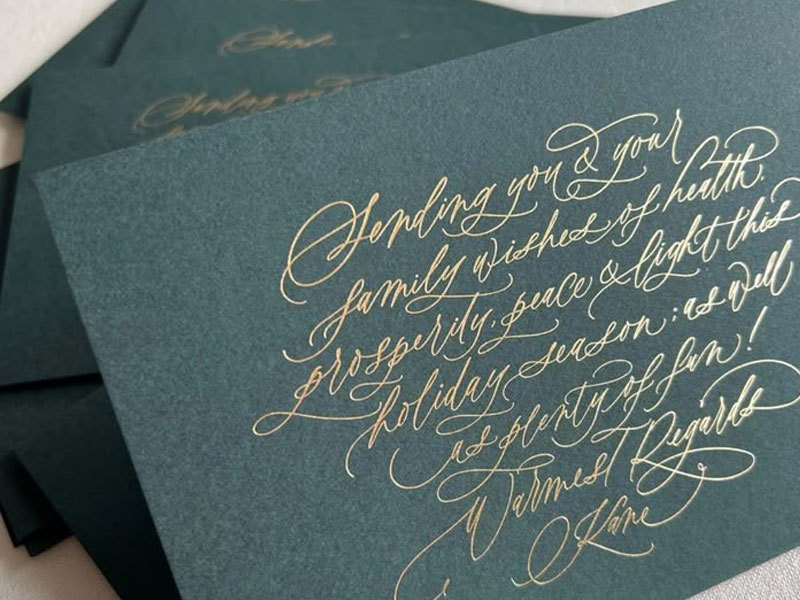 Send
Sending you
Sending you & your
family wishes of health,
prosperity, peace & light this
holiday season; as well
as plenty of fun!
Warmest Regards
Kane